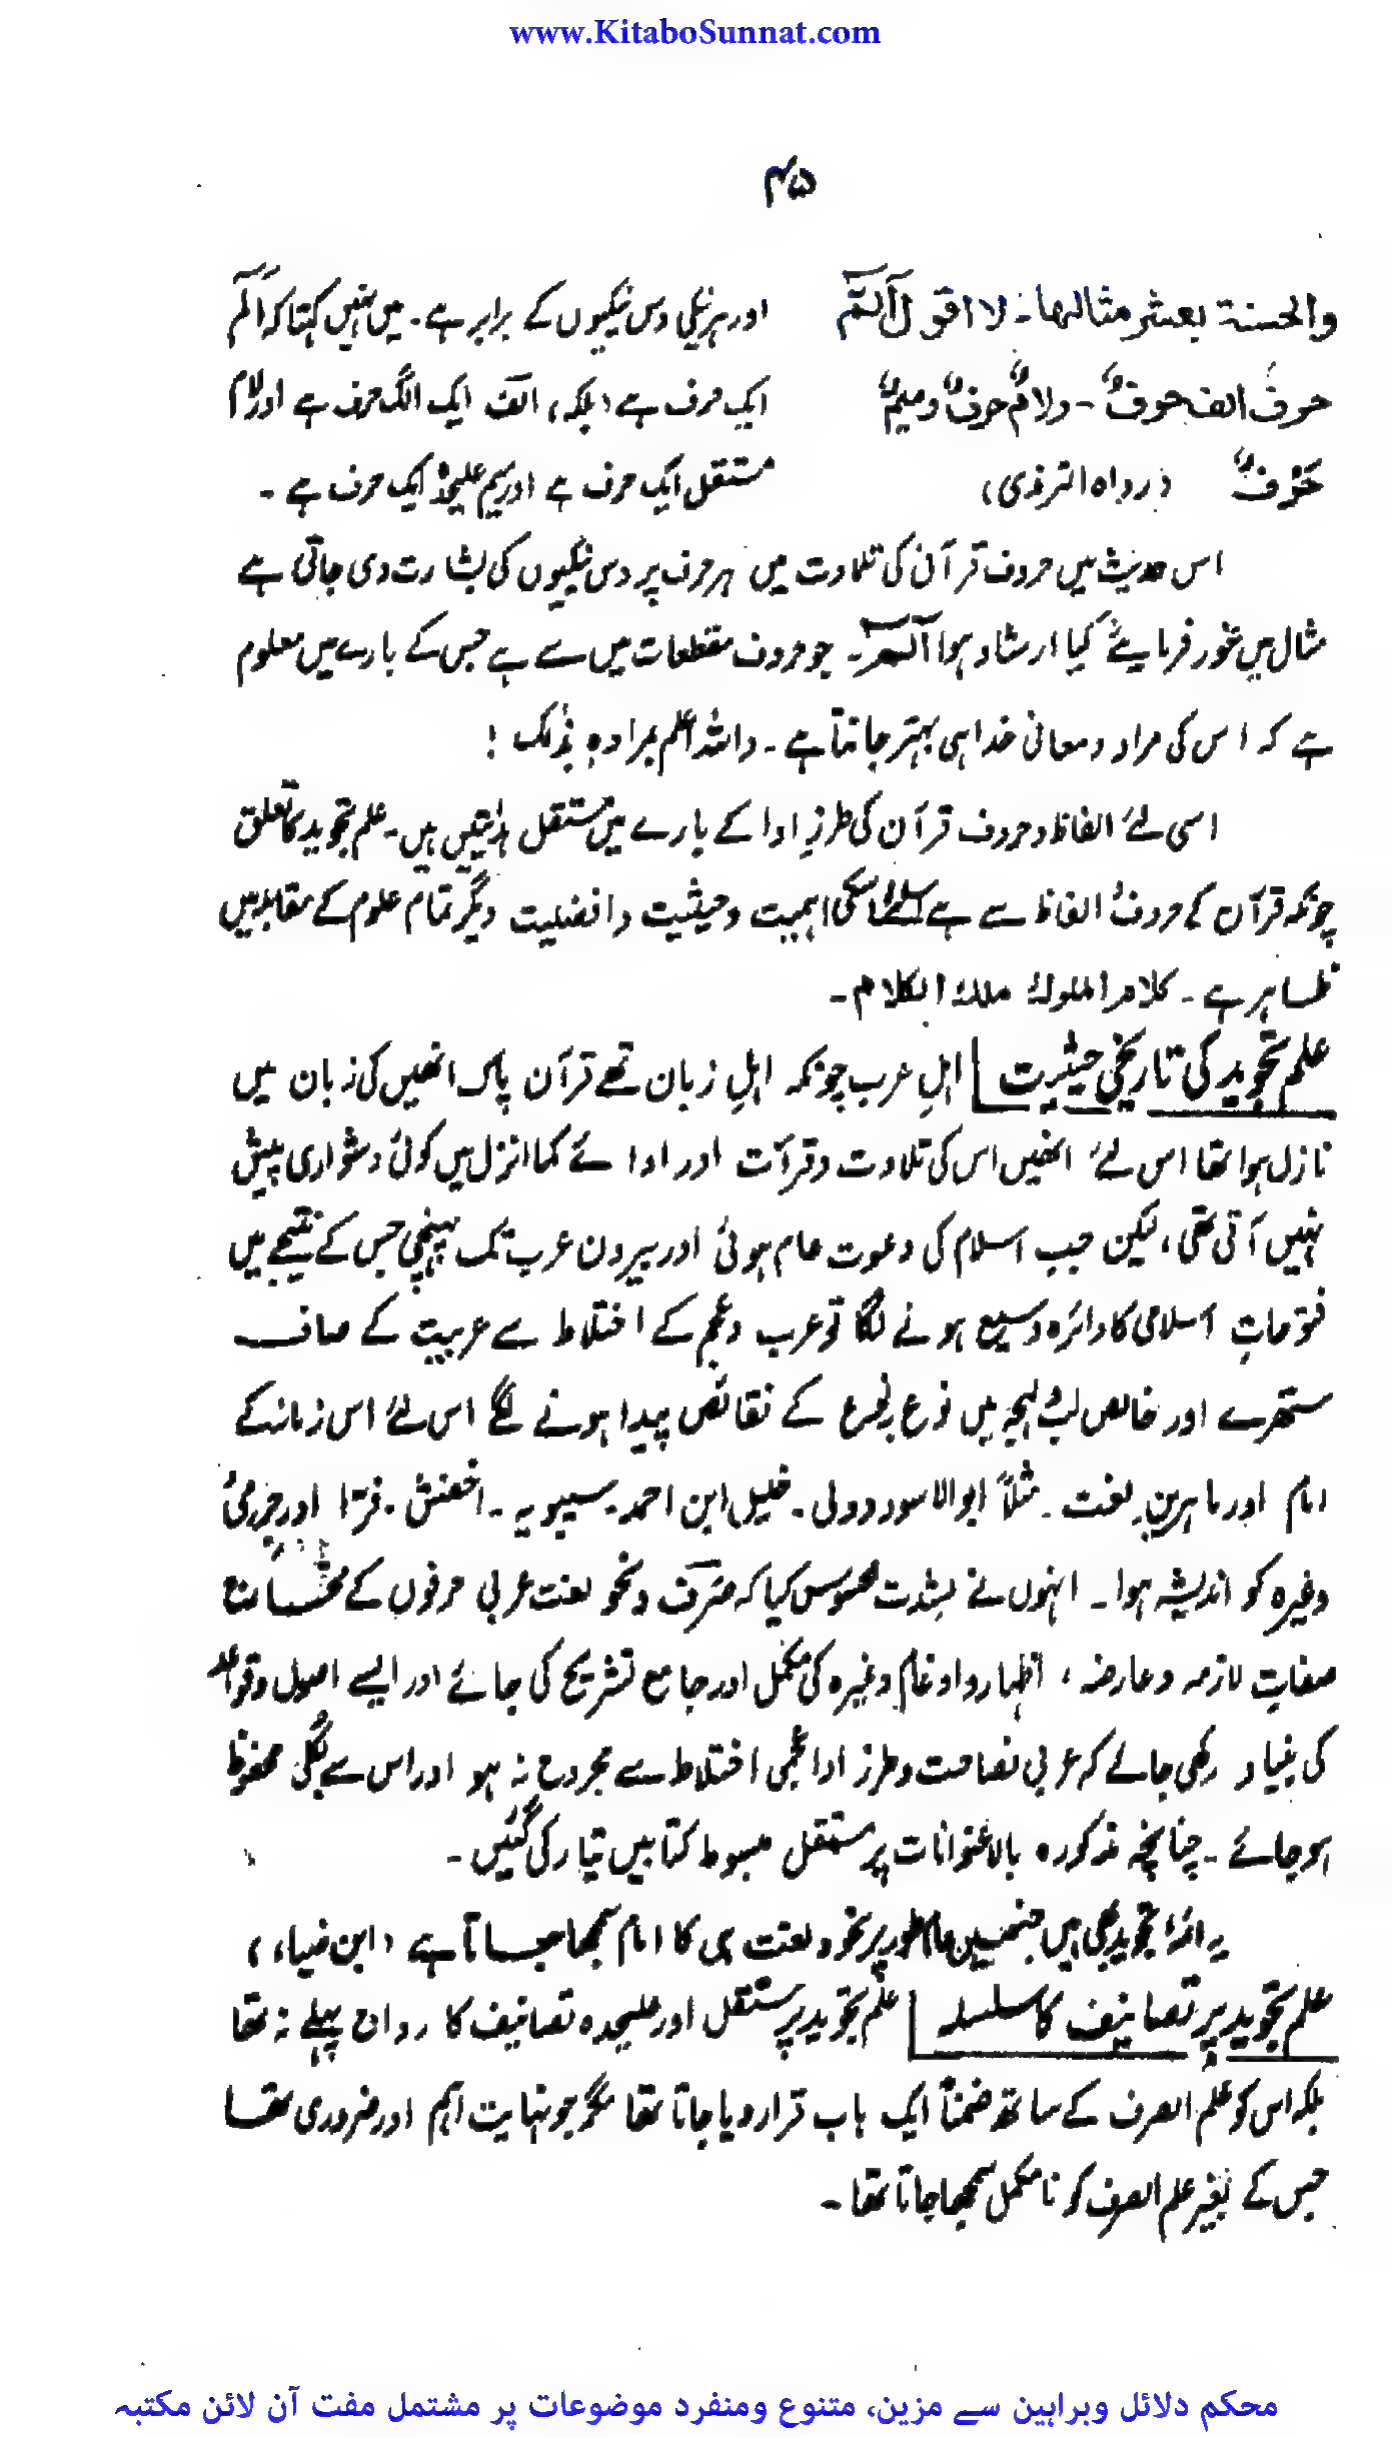 www.KitaboSunnat.com
۴۵
والحسنة بعشر مثالها۔ لا اقول آلٓمّٓ
حرف الف حرفٌ۔ ولامٌ حرفٌ ومیمٌ
حَرْفٌ (رواہ الترمذی)
اور ہر نیکی دس نیکیوں کے برابر ہے۔ میں نہیں کہتا کہ الٓمٓ
ایک حرف ہے (بلکہ) الف ایک الگ حرف ہے اور لام
مستقل ایک حرف ہے اور میم علیحدہ ایک حرف ہے۔
اس حدیث میں حروف قرآنی کی تلاوت میں ہر حرف پر دس نیکیوں کی بشارت دی جاتی ہے
مثال میں غور فرمایئے کیا ارشاد ہوا آلٓمّٓ۔ جو حروف مقطعات میں سے ہے جس کے بارے میں معلوم
ہے کہ اس کی مراد ومعانی خدا ہی بہتر جانتا ہے۔ واللہ اعلم بمرادہٖ بذٰلک !
اسی لئے الفاظ وحروف قرآن کی طرزِ ادا کے بارے میں مستقل ہدایتیں ہیں۔ علم تجوید کا تعلق
چونکہ قرآن کے حروف الفاظ سے ہے اسلئے اسکی اہمیت وحیثیت وافضلیت دیگر تمام علوم کے مقابلہ میں
ظاہر ہے۔ کلام الملوک ملک الکلام۔
علم تجوید کی تاریخی حیثیت اہلِ عرب چونکہ اہلِ زبان تھے قرآن پاک انھیں کی زبان میں
نازل ہوا تھا اس لئے انھیں اس کی تلاوت وقرآت اور ادا ئے کما انزل میں کوئی دشواری پیش
نہیں آتی تھی، لیکن جب اسلام کی دعوت عام ہوئی اور بیرون عرب تک پہنچی جس کے نتیجے میں
فتوحاتِ اسلامی کا دائرہ وسیع ہونے لگا تو عرب وعجم کے اختلاط سے عربیت کے صاف
ستھرے اور خالص لب ولہجہ میں نوع بنوع کے نقائص پیدا ہونے لگے اس لئے اس زمانہ کے
امام اور ماہرین لغت۔ مثلاً ابوالاسود دولی۔ خلیل ابن احمد۔ سیبویہ۔ اخفش۔ فرّا اور جرمیؒ
وغیرہ کو اندیشہ ہوا۔ انہوں نے بشدت محسوس کیا کہ صَرف ونحو لغت عربی حرفوں کے مخارج
صفاتِ لازمہ وعارضہ، اظہار وادغام وغیرہ کی مکمل اور جامع تشریح کی جائے اور ایسے اصول وقواعد
کی بنیاد رکھی جائے کہ عربی فصاحت وطرز ادا عجمی اختلاط سے مجروح نہ ہو اور اس سے بکلی محفوظ
ہوجائے۔ چنانچہ مذکورہ بالا عنوانات پر مستقل مبسوط کتابیں تیار کی گئیں۔
یہ ائمہ تجوید بھی ہیں جنھیں عام طور پر نحو ولغت ہی کا امام سمجھا جاتا ہے (ابن ضیاء)
علم تجوید پر تصانیف کا سلسلہ علم تجوید پر مستقل اور علیحدہ تصانیف کا رواج پہلے نہ تھا
بلکہ اس کو علم الصرف کے ساتھ ضمناً ایک باب قرار دیا جاتا تھا مگر جو نہایت اہم اور ضروری تھا
جس کے بغیر علم الصرف کو نامکمل سمجھا جاتا تھا۔
محکم دلائل وبراہین سے مزین، متنوع ومنفرد موضوعات پر مشتمل مفت آن لائن مکتبہ